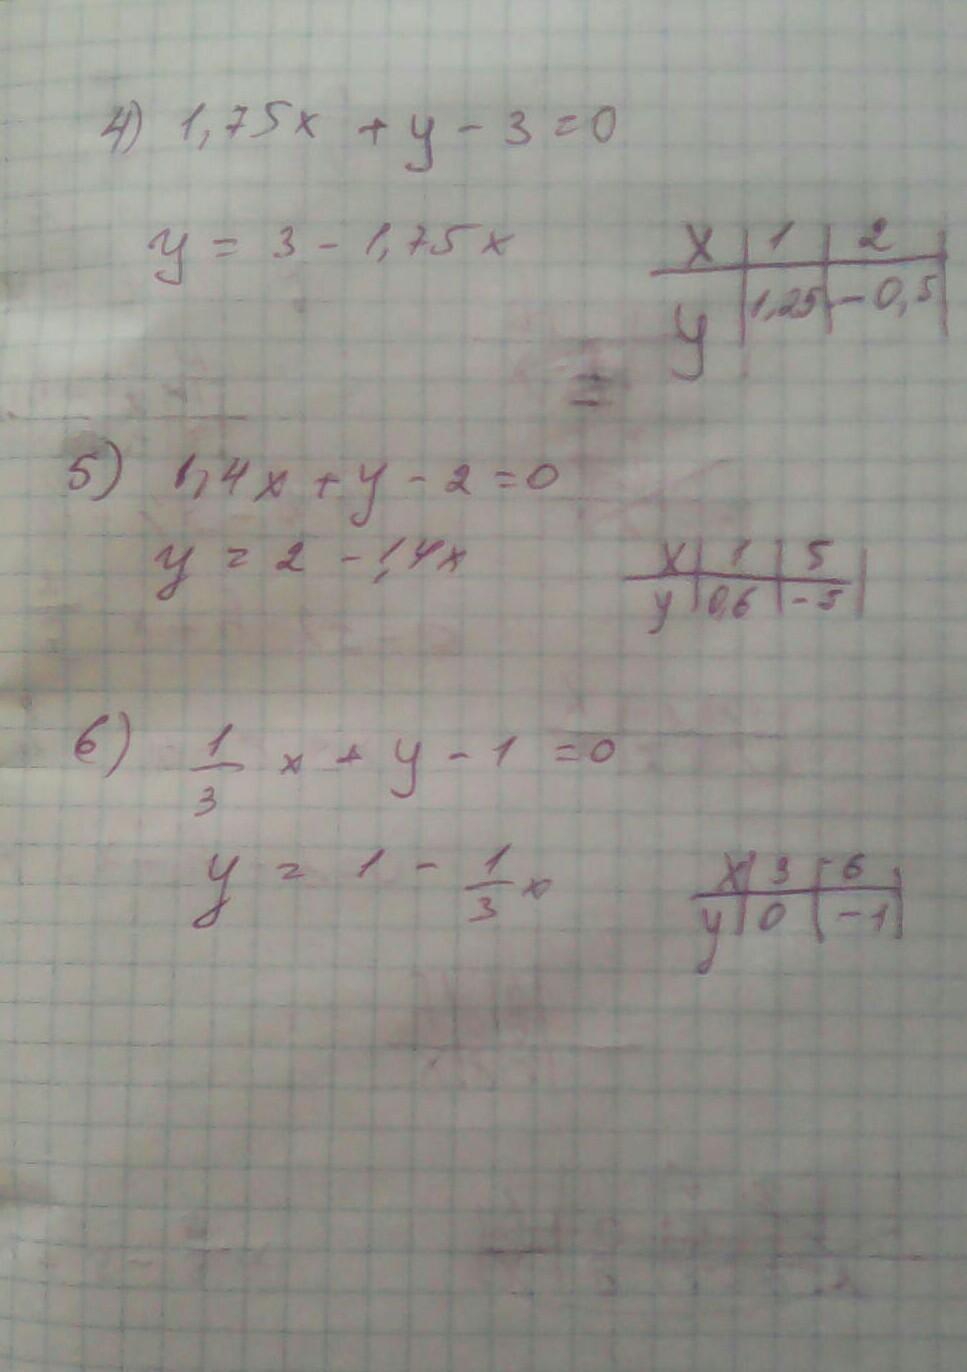 4) 1,75x + y - 3 = 0
y = 3 - 1,75x
x | 1 | 2 |
y | 1,25 | -0,5 |
=
5) 1,4x + y - 2 = 0
y = 2 - 1,4x
x | 1 | 5 |
y | 0,6 | -5 |
6) 1/3 x + y - 1 = 0
y = 1 - 1/3 x
x | 3 | 6 |
y | 0 | -1 |